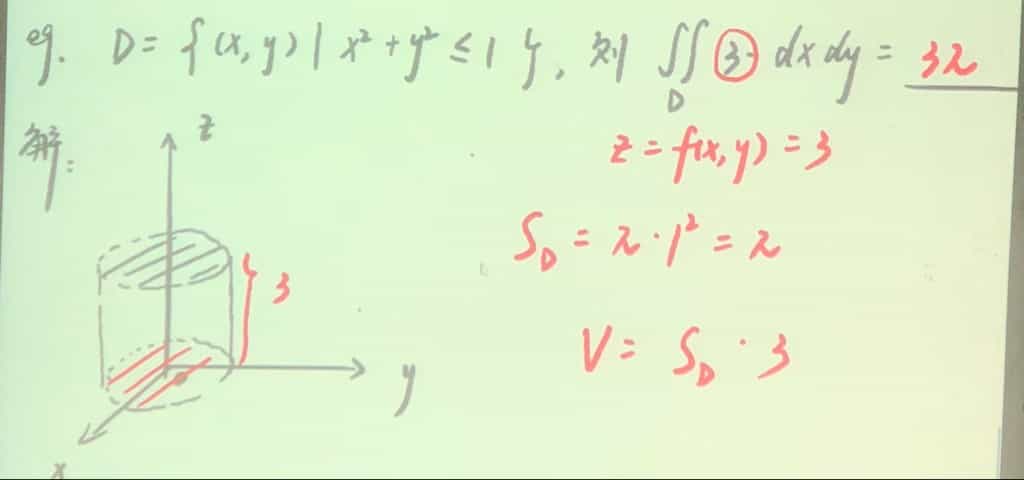 eg. D = {(x, y) | x² + y² ≤ 1}, 则 ∬_D 3 dxdy = 3π
解:
z
z = f(x, y) = 3
S_D = π · 1² = π
3
V = S_D · 3
y
x